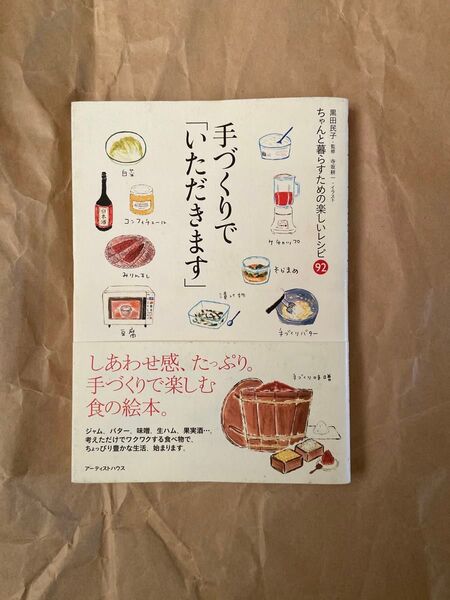 黒田民子・監修 寺坂耕一・イラスト
ちゃんと暮らすための楽しいレシピ 92
手づくりで
「いただきます」
白菜
日本酒
コンフィチュール
ケチャップ
みりんぼし
漬け物
豆腐
手づくりバター
手づくり味噌
しあわせ感、たっぷり。
手づくりで楽しむ
食の絵本。
ジャム、バター、味噌、生ハム、果実酒…。
考えただけでワクワクする食べ物で、
ちょっぴり豊かな生活、始まります。
アーティストハウス